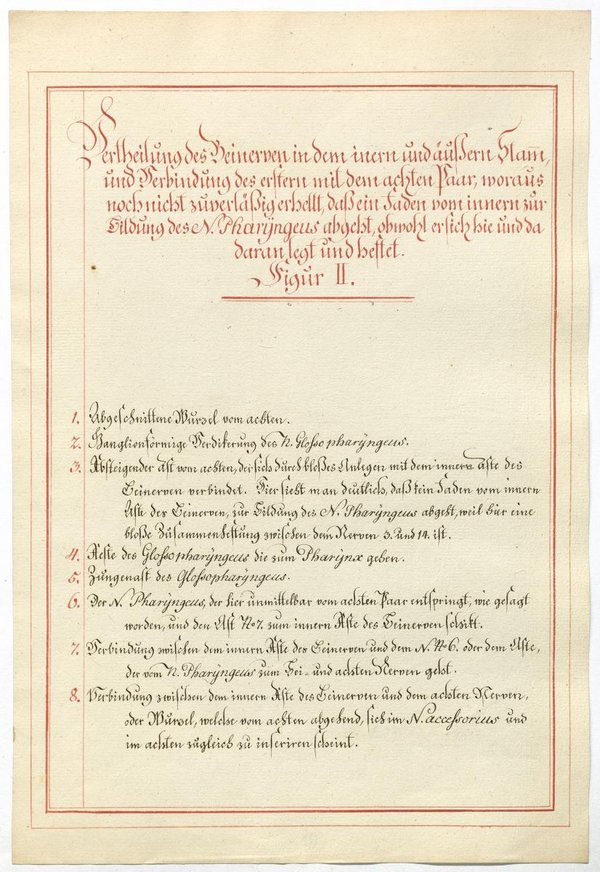 Vertheilung des Beinerven in dem inern und äußern Stam̅,
und Verbindung des erstern mit dem achten Paar, woraus
noch nicht zuverläßig erhellt, daß ein Faden vom innern zur
Bildung des N. Pharÿngeus abgeht, obwohl er sich hie und da
daran legt und heftet.
Figur II.
1. Abgeschnittene Wurzel vom achten.
2. Ganglionförmige Verdikerung des N. Glosso pharÿngeus.
3. Absteigender Ast vom achten, der sich durch bloßes Anlegen mit dem innern Aste des
Beinerven verbindet. Hier sieht man deutlich, daß kein Faden vom innern
Aste des Beinerven, zur Bildung des N. Pharÿngeus abgeht, weil hier eine
bloße Zusammenheftung zwischen dem Nerven 3. und 14. ist.
4. Aeste des Glossopharÿngeus die zum Pharÿnx gehen.
5. Zungenast des Glossopharÿngeus.
6. Der N. Pharÿngeus, der hier unmittelbar vom achten Paar entspringt, wie gesagt
worden, und den Ast No 7. zum innern Aste des Beinerven schikt.
7. Verbindung zwischen dem innern Aste des Beinerven und dem N. No 6. oder dem Aste,
der vom N. Pharÿngeus zum Bei- und achten Nerven geht.
8. Verbindung zwischen dem innern Aste des Beinerven und dem achten Nerven,
oder Wurzel, welche vom achten abgehend, sich im N. accessorius und
im achten zugleich zu inseriren scheint.